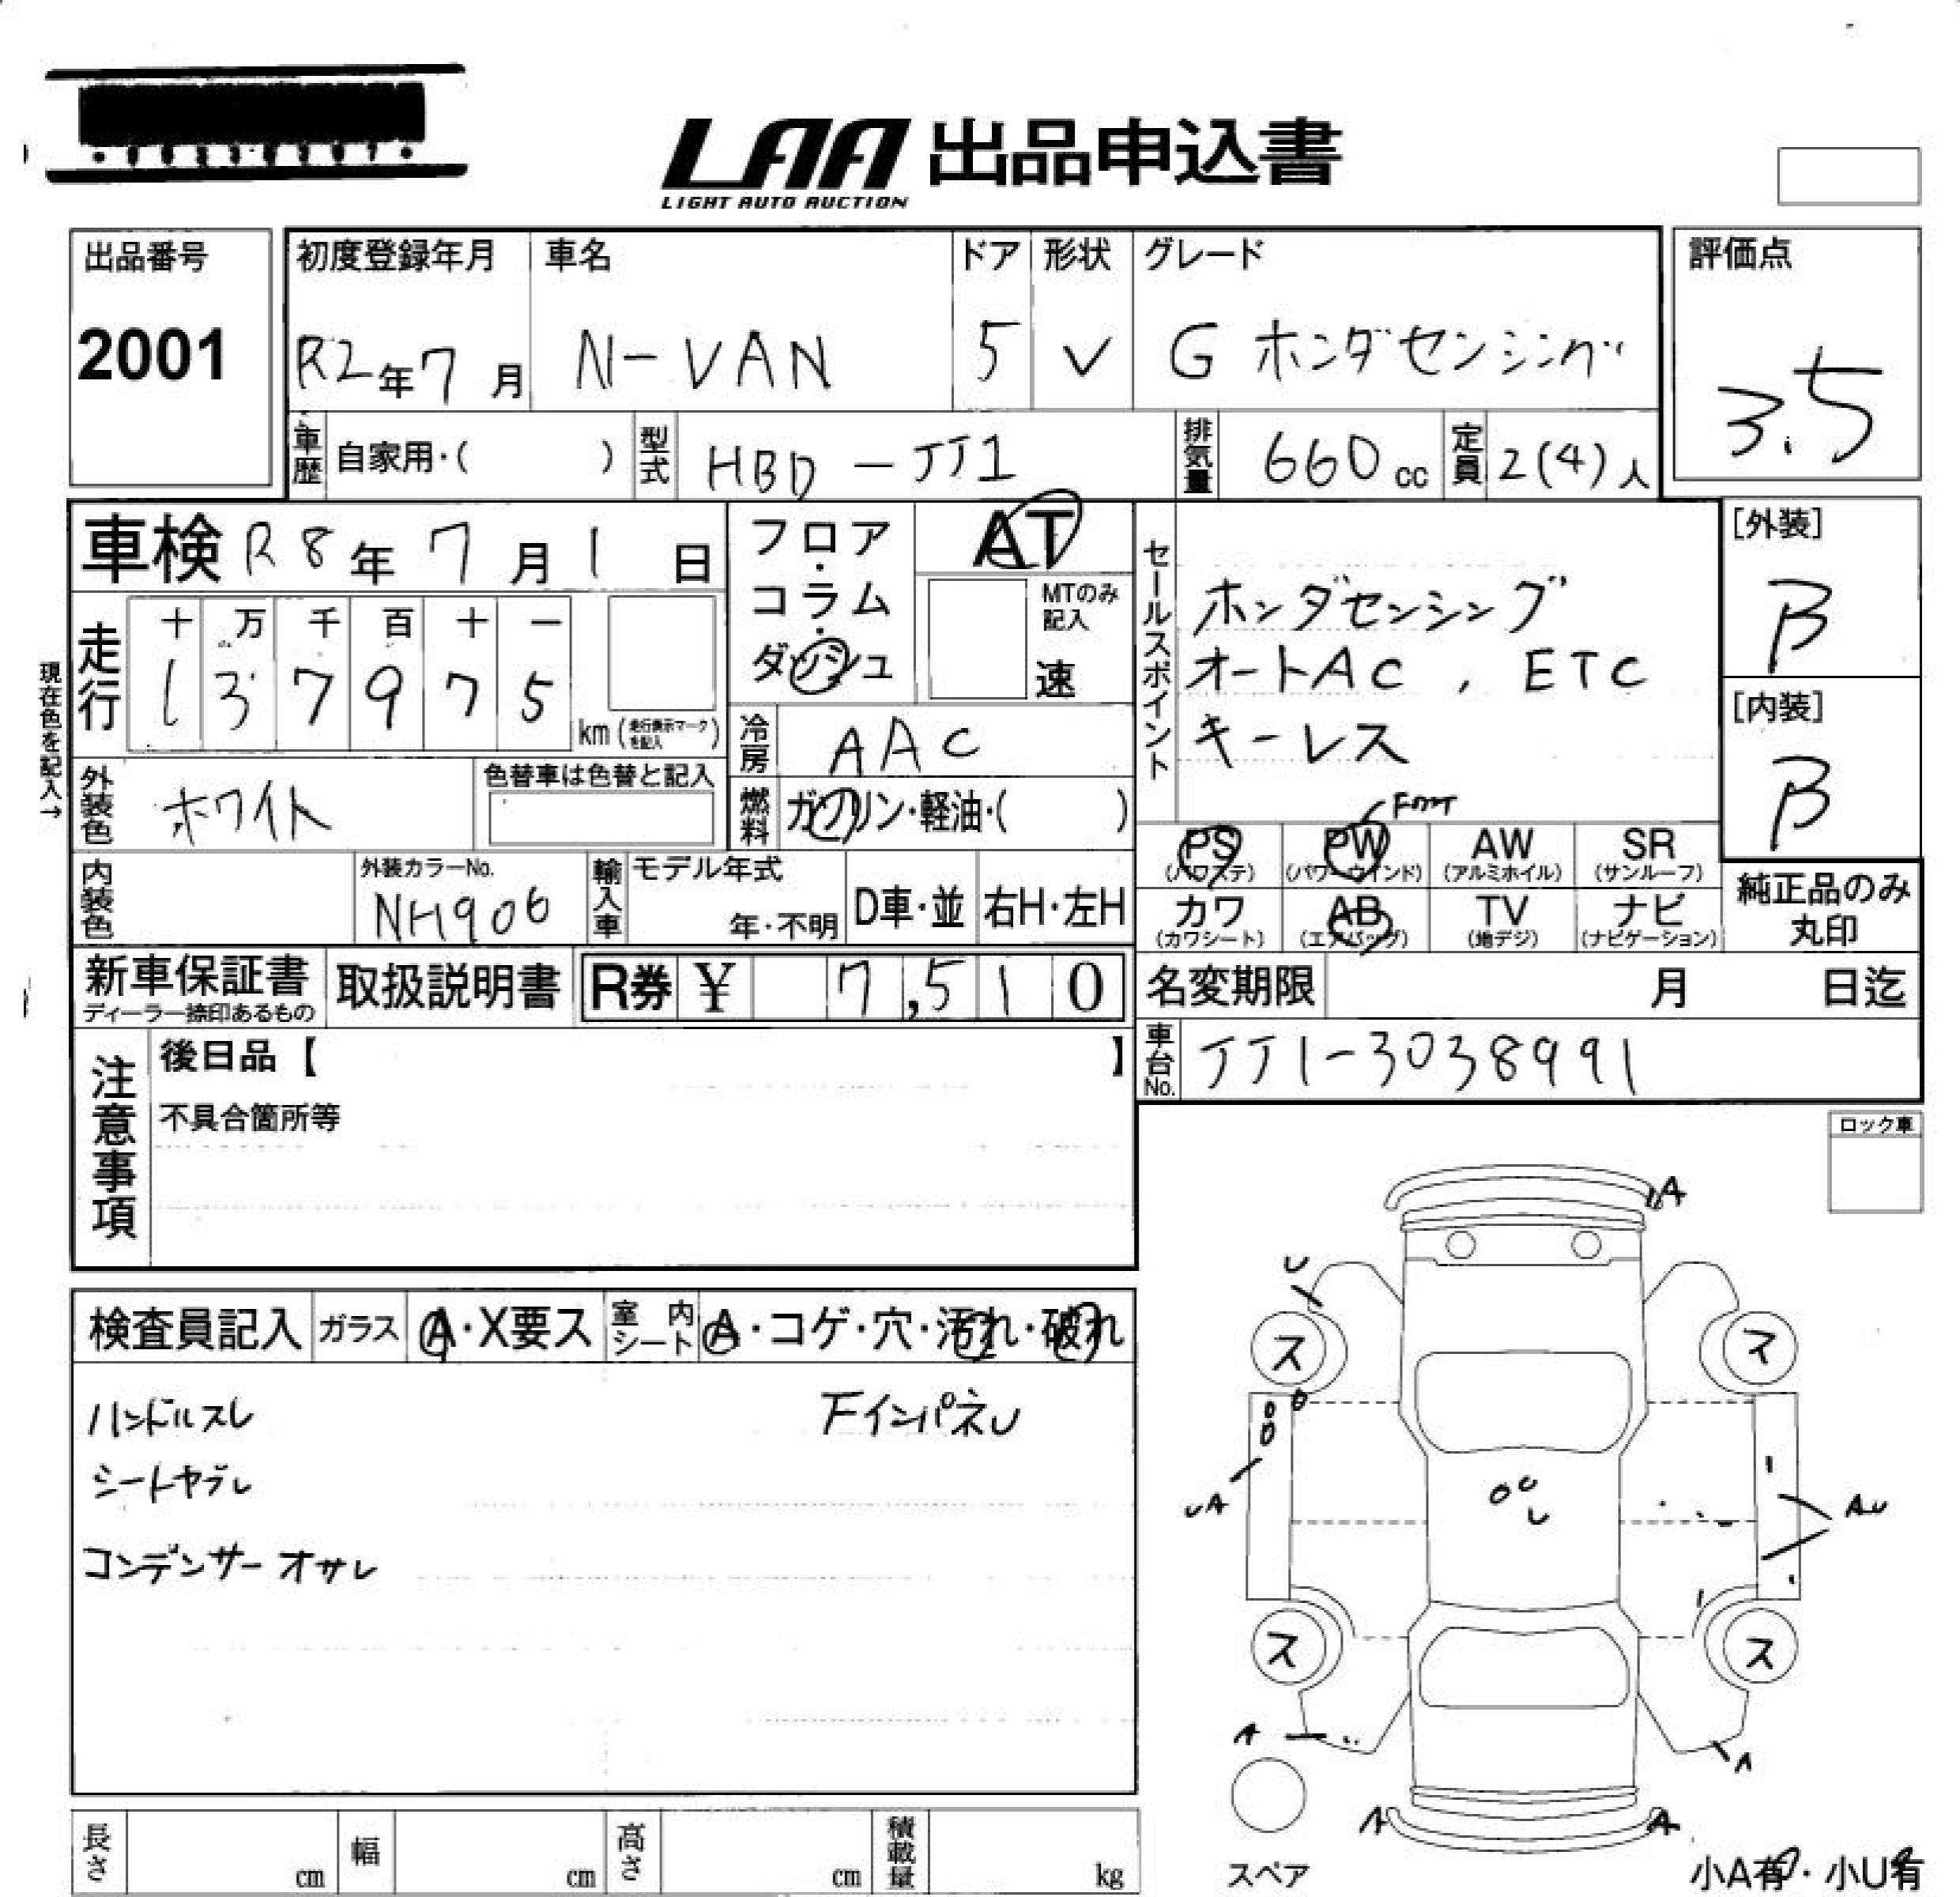 LAA 出品申込書
LIGHT AUTO AUCTION
出品番号
2001
初度登録年月
R2年7月
車名
N-VAN
ドア
5
形状
V
グレード
G ホンダセンシング
評価点
3.5
車歴 自家用・( )
型式 HBD-JJ1
排気量 660cc
定員 2(4)人
車検 R8年7月1日
フロア・コラム・ダッシュ
AT
MTのみ記入
速
現在色を記入→
走行
十 万 千 百 十 一
1 3 7 9 7 5 km (走行表示マークを記入)
冷房 AAC
燃料 ガソリン・軽油・( )
セールスポイント
ホンダセンシング
オートAC , ETC
キーレス
[外装]
B
[内装]
B
外装色 ホワイト
色替車は色替と記入
内装色
外装カラーNo.
NH906
輸入車
モデル年式
年・不明
D車・並
右H・左H
PS (パワステ)
PW (パワーウインド)
AW (アルミホイル)
SR (サンルーフ)
カワ (カワシート)
AB (エアバッグ)
TV (地デジ)
ナビ (ナビゲーション)
純正品のみ
丸印
新車保証書
ディーラー捺印あるもの
取扱説明書
R券 ¥ 7,510
名変期限 月 日迄
車台No. JJ1-3038991
注意事項
後日品【 】
不具合箇所等
ロック車
検査員記入
ガラス A・X要ス
室内シート A・コゲ・穴・汚れ・破れ
ハンドルスレ
FインパネU
シートヤブレ
コンデンサー オサレ
A
U
ス
ス
UA
AU
ス
ス
A
A
A
A
スペア
小A有・小U有
長さ cm
幅 cm
高さ cm
積載量 kg